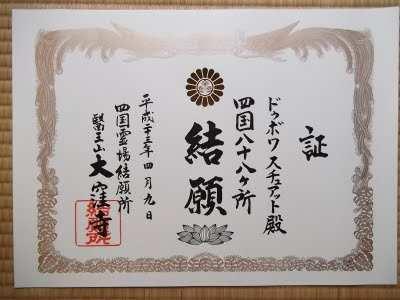 証
ドゥボワ スチュアート殿
四国八十八ヶ所
結願
平成二十三年四月九日
四国霊場結願所
醫王山 大窪寺
結願所